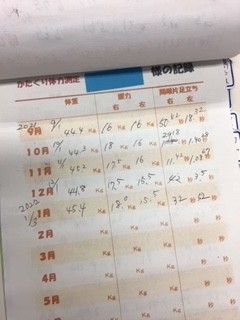 かたくり体力測定 様の記録
体重 握力 開眼片足立ち
右 左 右 左
2021 9/1 9月 44.4 Kg 16 Kg 16 Kg 秒 18.32 秒
10月 44.3 Kg 18 Kg 16 Kg 秒 秒
11月 45.2 Kg 17.5 Kg 16 Kg 秒 秒
12月 44.8 Kg 17.5 Kg 15.5 Kg 42 秒 35 秒
2022 1月 45.4 Kg 18.0 Kg 15.5 Kg 32 秒 32 秒
2月 Kg Kg Kg 秒 秒
3月 Kg Kg Kg 秒 秒
4月 Kg Kg Kg 秒 秒
5月 Kg Kg Kg 秒 秒